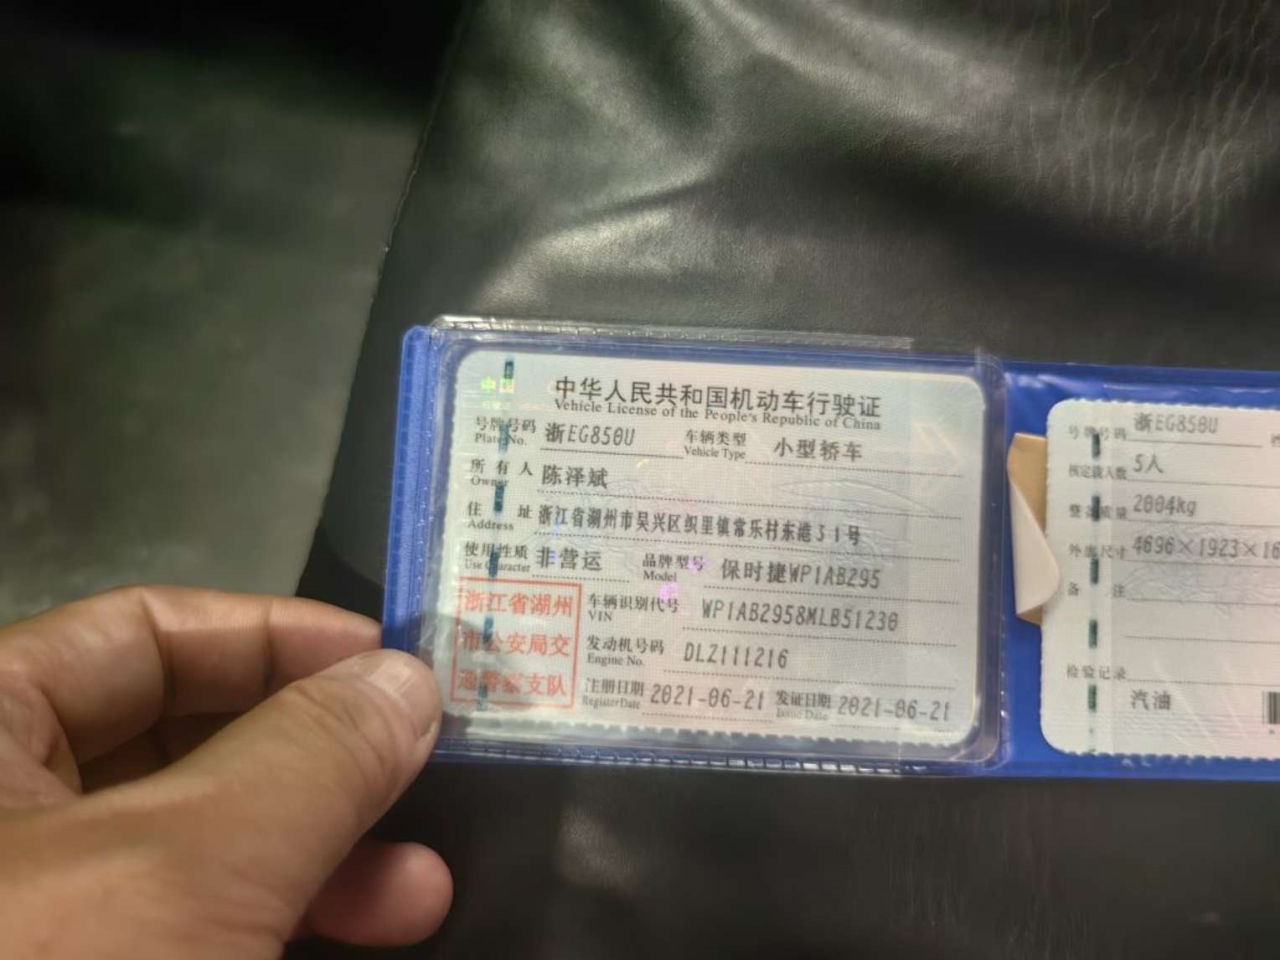 中国
中华人民共和国机动车行驶证
Vehicle License of the People's Republic of China
号牌号码 浙EG850U 车辆类型 小型轿车
Plate No. Vehicle Type
所有人 陈泽斌
Owner
住址 浙江省湖州市吴兴区织里镇常乐村东港51号
Address
使用性质 非营运 品牌型号 保时捷WP1AB295
Use Character Model
浙江省湖州
市公安局交
通警察支队
车辆识别代号 WP1AB2958MLB51230
VIN
发动机号码 DLZ111216
Engine No.
注册日期 2021-06-21 发证日期 2021-06-21
Register Date Issue Date
号牌号码 浙EG850U
核定载人数 5人
整备质量 2004kg
外廓尺寸 4696×1923×16
备注
检验记录
汽油